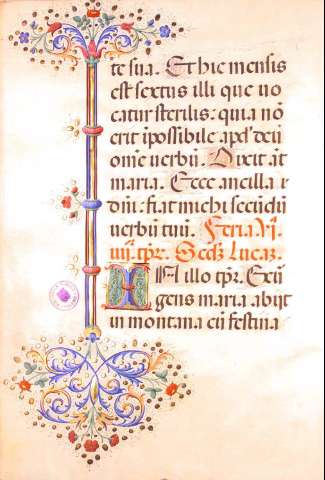 te sua. Et hic mensis
est sextus illi que vo
catur sterilis: quia nō
erit īpossibile apd' deū
omē verbū. Dixit at̄
maria. Ecce ancilla
dn̄i: fiat michi secūdū
verbū tuū. Feria vj.
iiij. tpr̄. Secd̄z Lucaz.
IN illo tpr̄. Exū
gens maria abijt
in montana cū festina